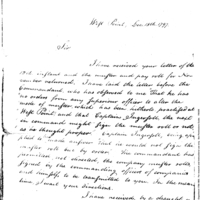 West Point, Dec. 18th 1797
Sir
I have received your letter of the
and the muster and pay roll for Nov-
ember returned. I have laid the letter before the
Commandant, who has objected to me that he has
no orders from any superior officer to alter the
mode of muster which has been hitherto practised at
West Point and that Captain Ingersoll, the next
in command might sign the muster roll or not
as he thought proper. Captain Ingersoll, being ap-
plied to made answer that he would not sign the
muster roll but by order. The Commandant has
promised me directed, the company muster rolls
signed by the commanding officer of companies
and himself to be transmitted to you. In the mean
time I wait your directions.
I have received by a